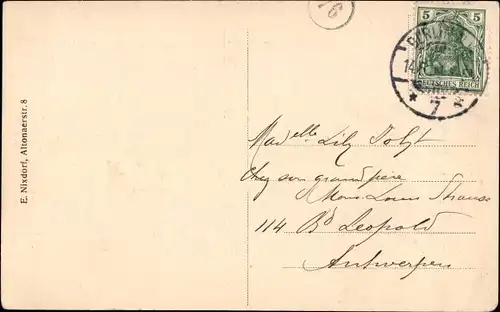 5 5
DEUTSCHES REICH
* 7 *
E. Nixdorf, Altonaerstr. 8
Mad elle Lily
Chez son grand père
Mons Louis Strauss
114 Bd Leopold
Antwerpen